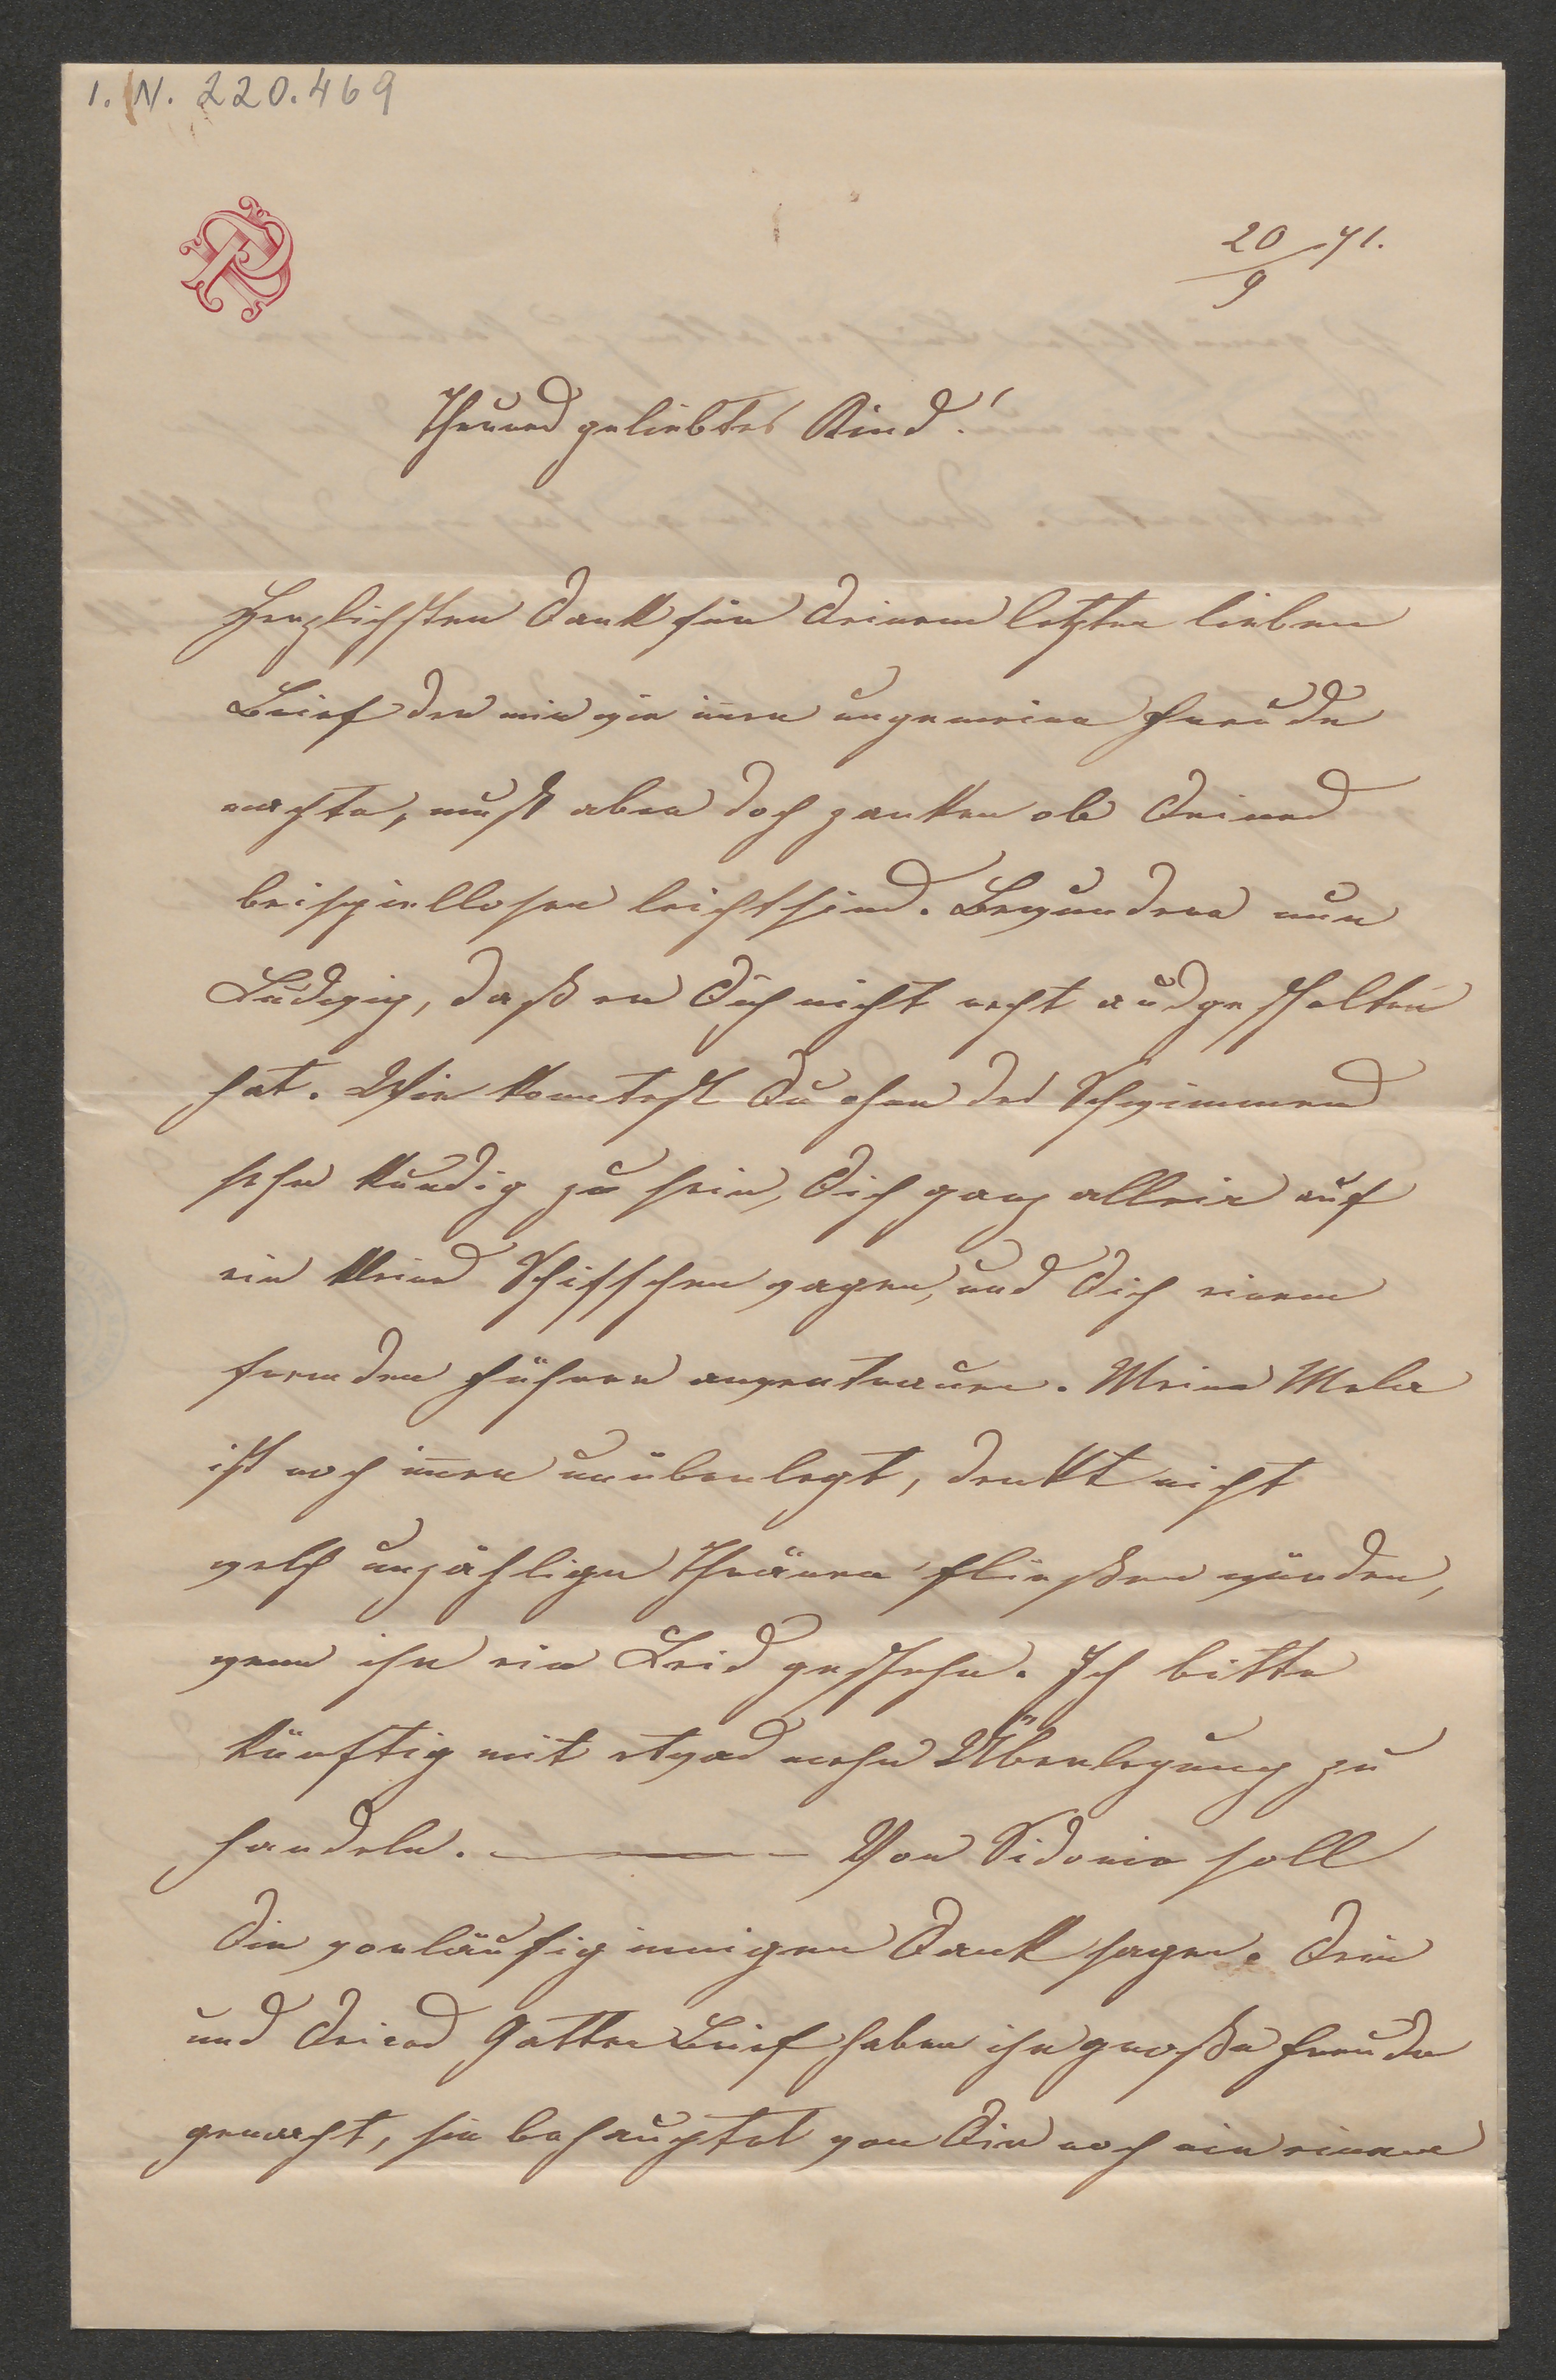 I. N. 220.469
20/9 71.
Theures geliebtes Kind!
Herzlichsten Dank für Deinem letzten lieben
Brief der mir wie im̅er ungemeine Freude
machte, muß aber doch zanken ob Deines
beispiellosen leichtsins. Bewundere nur
Ludwig, daß er Dich nicht recht ausgescholten
hat. Wie konntest Du ohne des Schwimmens
sehr kundig zu sein, Dich ganz allein auf
ein kleines Schiffchen wagen, und Dich einem
fremden Führer anvertrauen. Meine Mela
ist noch im̅er unüberlegt, denkt nicht
welch unzählige Thränen fließen würden,
wenn ihr ein Leid geschehe. Ich bitte
künftig mit etwas mehr Überlegung zu
handeln. ——— Von Sidonie soll
Dir vorläufig innigen Dank sagen. Dein
und Deines Gatten Brief haben ihr große Freude
gemacht, sie behauptet von Dir noch nie einen